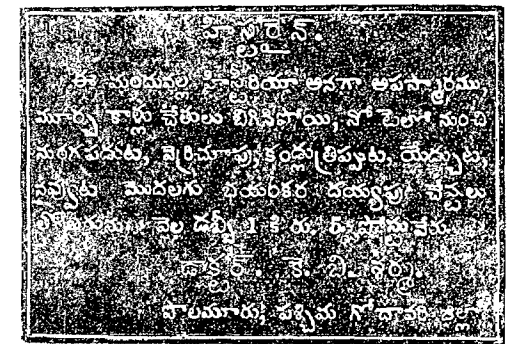 ఈ మందువల్ల హిస్టీరియా అనగా అపస్మారము,
మూర్ఛ కాళ్లు చేతులు బిగిసిపోయి, నోటిలో నుంచి
నురగపడుట, వెర్రిచూపు, కండ్లుత్రిప్పుట, యేడ్చుట,
నవ్వుట మొదలగు భయంకర దయ్యపు చేష్టలు
వెల డబ్బీ 1 కి రు.
డాక్టర్. కె. బి. శర్మ.
పాలమూరు, పశ్చిమ గోదావరి జిల్లా